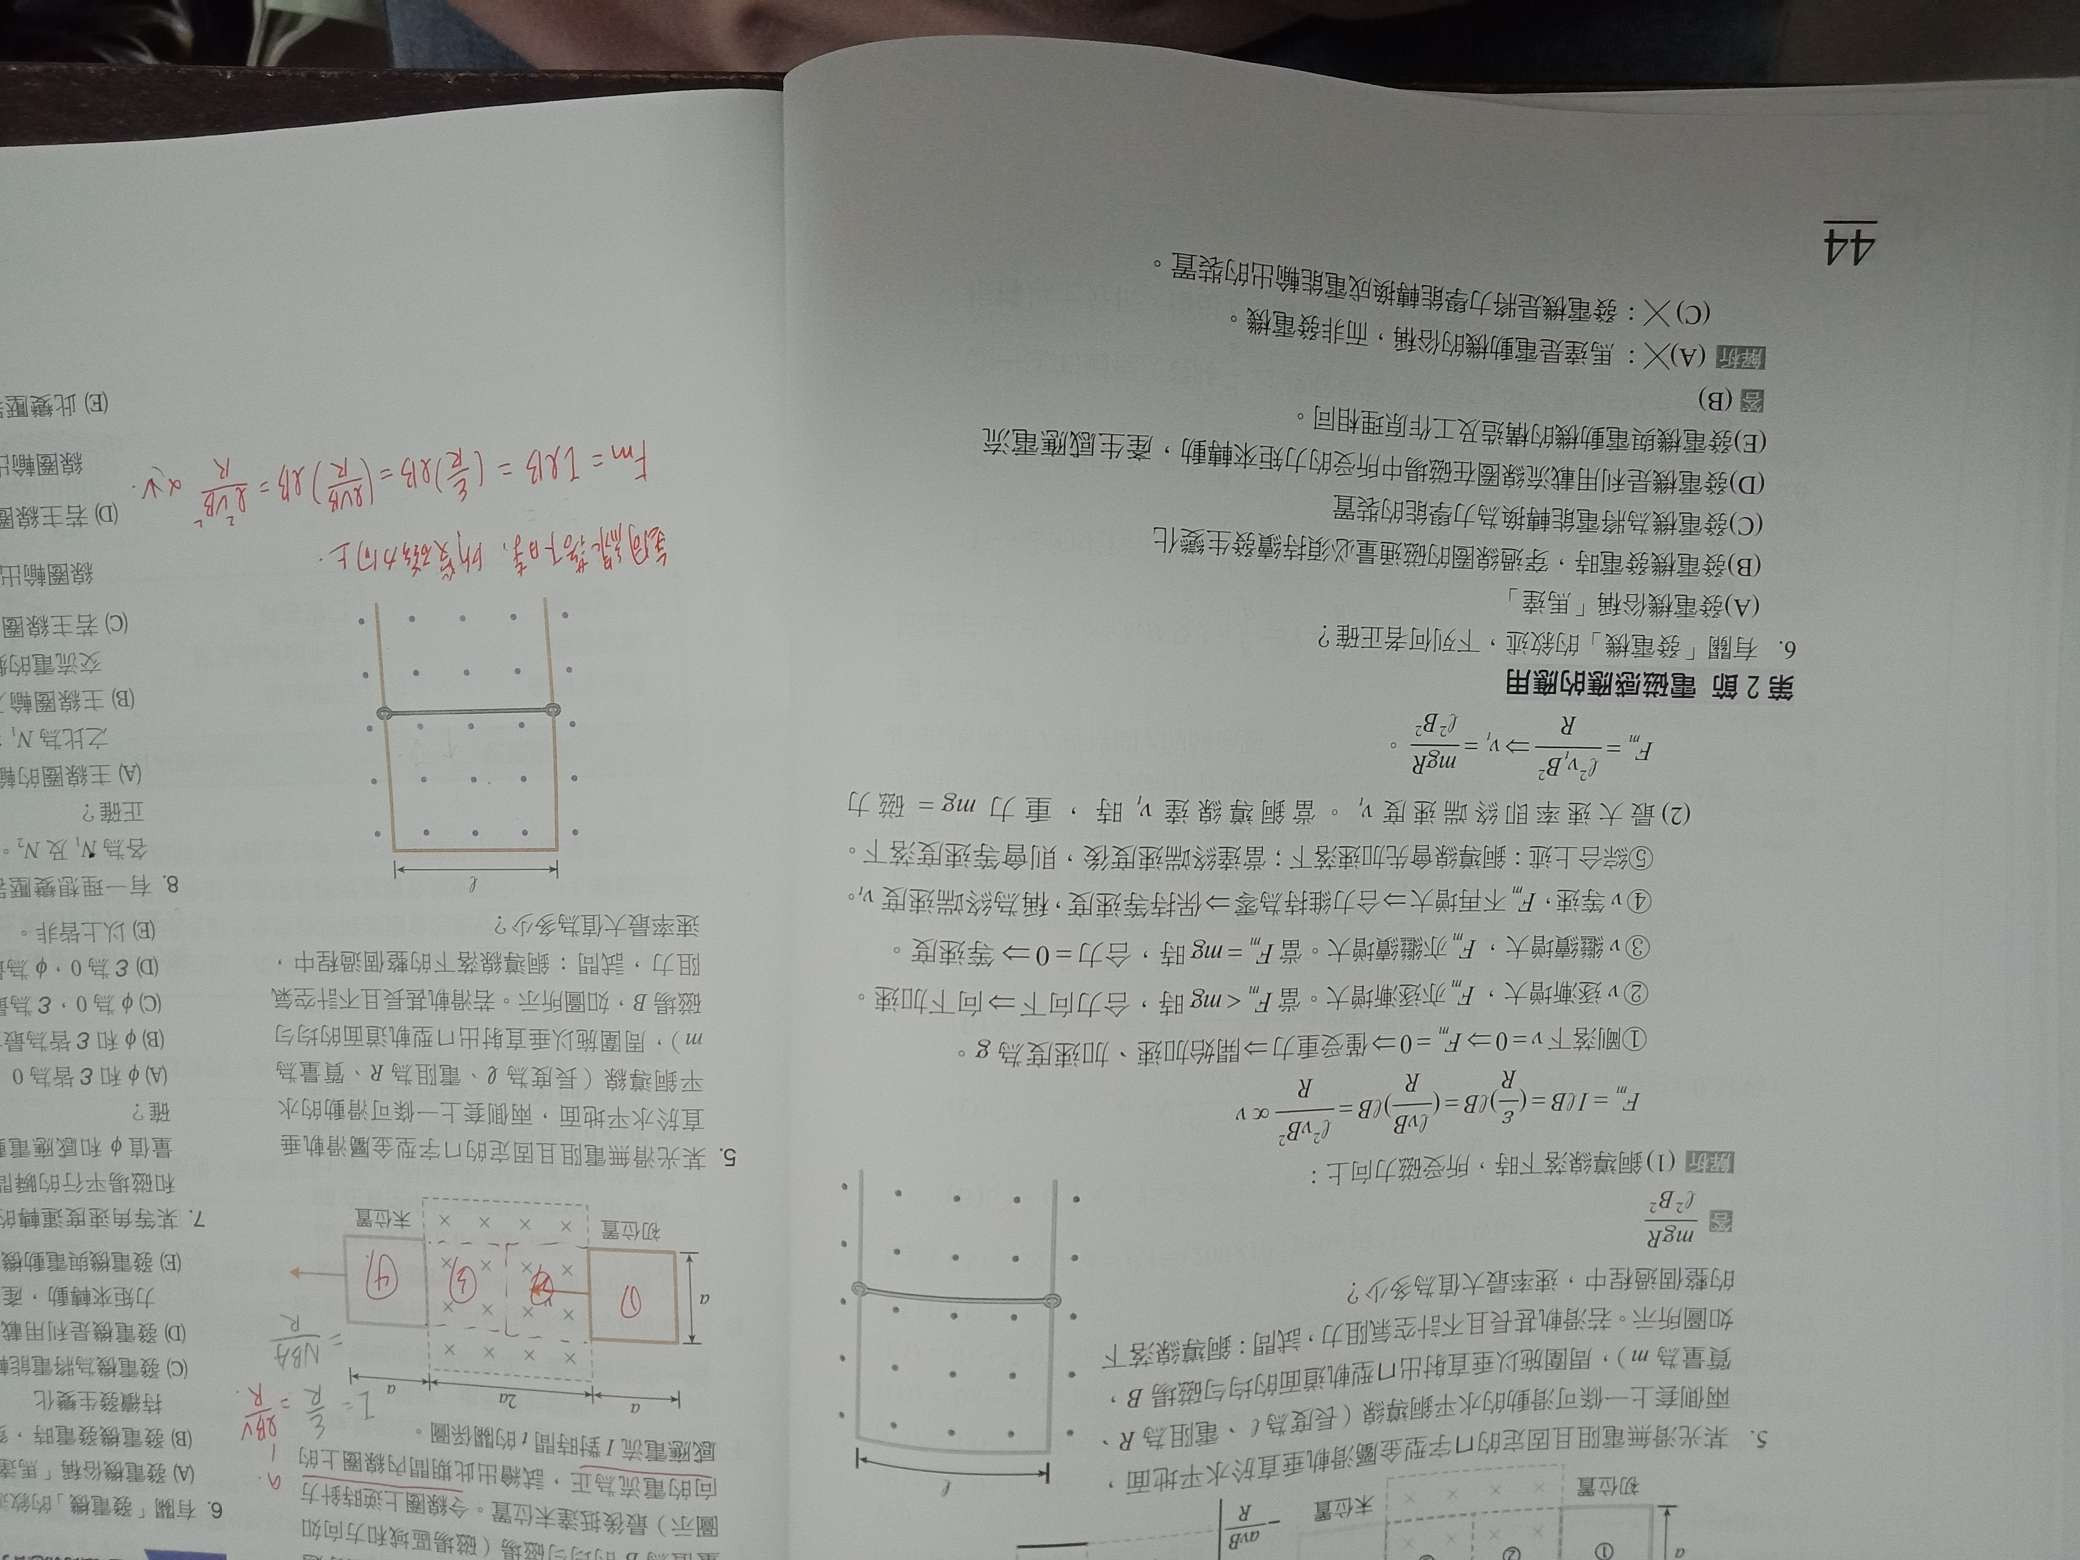 avB
R
a
①
②
初位置
末位置
5. 某光滑無電阻且固定的ㄇ字型金屬滑軌垂直於水平地面，
兩側套上一條可滑動的水平銅導線（長度為 ℓ、電阻為 R、
質量為 m），周圍施以垂直射出ㄇ型軌道面的均勻磁場 B，
如圖所示。若滑軌甚長且不計空氣阻力，試問：銅導線落下
的整個過程中，速率最大值為多少？
ℓ
答 mgR / ℓ²B²
解析 (1)銅導線落下時，所受磁力向上：
Fm = IℓB = (ε/R)ℓB = (ℓvB/R)ℓB = ℓ²vB²/R ∝ v
①剛落下 v = 0 ⇒ Fm = 0 ⇒ 僅受重力 ⇒ 開始加速、加速度為 g。
②v 逐漸增大，Fm 亦逐漸增大。當 Fm < mg 時，合力向下 ⇒ 向下加速。
③v 繼續增大，Fm 亦繼續增大。當 Fm = mg 時，合力 = 0 ⇒ 等速度。
④v 等速，Fm 不再增大 ⇒ 合力維持為零 ⇒ 保持等速度，稱為終端速度 vt。
⑤綜合上述：銅導線會先加速落下；當達終端速度後，則會等速度落下。
(2)最大速率即終端速度 vt。當銅導線達 vt 時，重力 mg = 磁力
Fm = ℓ²vtB²/R ⇒ vt = mgR/ℓ²B²。
第 2 節 電磁感應的應用
6. 有關「發電機」的敘述，下列何者正確？
(A)發電機俗稱「馬達」
(B)發電機發電時，穿過線圈的磁通量必須持續發生變化
(C)發電機為將電能轉換為力學能的裝置
(D)發電機是利用載流線圈在磁場中所受的力矩來轉動，產生感應電流
(E)發電機與電動機的構造及工作原理相同。
答 (B)
解析 (A)╳：馬達是電動機的俗稱，而非發電機。
(C)╳：發電機是將力學能轉換成電能輸出的裝置。
44
圖示）最後抵達末位置。令線圈上逆時針方
向的電流為正，試繪出此期間內線圈上的
感應電流 I 對時間 t 的關係圖。
I = ε/R = ℓBv/R.
= NBA/R
a
2a
a
a
①
②
③
④
初位置
末位置
5. 某光滑無電阻且固定的ㄇ字型金屬滑軌垂
直於水平地面，兩側套上一條可滑動的水
平銅導線（長度為 ℓ、電阻為 R、質量為
m），周圍施以垂直射出ㄇ型軌道面的均勻
磁場 B，如圖所示。若滑軌甚長且不計空氣
阻力，試問：銅導線落下的整個過程中，
速率最大值為多少？
ℓ
落下時，所受磁力向上.
Fm = IℓB = (ε/R)ℓB = (ℓvB/R)ℓB = ℓ²vB²/R ∝ v.
6. 有關「發電機」的敘
(A) 發電機俗稱「馬達
(B) 發電機發電時，穿
持續發生變化
(C) 發電機為將電能轉
(D) 發電機是利用載
力矩來轉動，產
(E) 發電機與電動機
7. 某等角速度運轉的
和磁場平行的瞬間
量值 ϕ 和感應電動
確？
(A) ϕ 和 ε 皆為 0
(B) ϕ 和 ε 皆為最
(C) ϕ 為 0，ε 為最
(D) ε 為 0，ϕ 為最
(E) 以上皆非。
8. 有一理想變壓器
各為 N₁ 及 N₂。
正確？
(A) 主線圈的輸
之比為 N₁：
(B) 主線圈輸入
交流電的頻
(C) 若主線圈
線圈輸出
(D) 若主線圈
線圈輸出
(E) 此變壓器